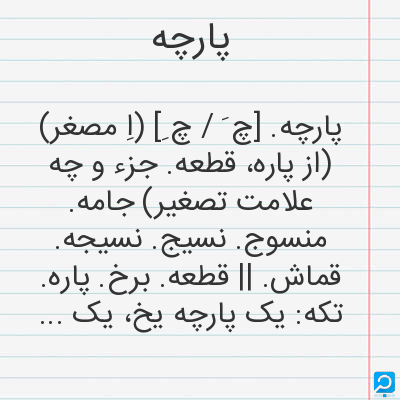 پارچه
پارچه. [چ َ / چ ِ] (اِ مصغر)
(از پاره، قطعه. جزء و چه
علامت تصغیر) جامه.
منسوج. نسیج. نسیجه.
قماش. || قطعه. برخ. پاره.
تکه: یک پارچه یخ، یک ...